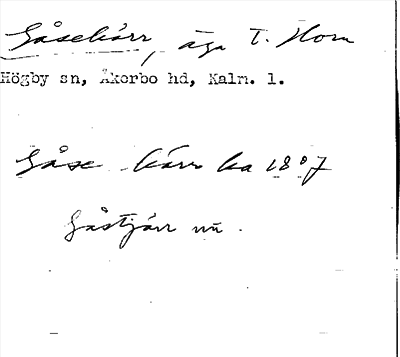 Gåsekärr, äga t. Horn
Högby sn, Åkerbo hd, Kalm. l.
Gåse kärr ha 1807
Gåstjärr uu.